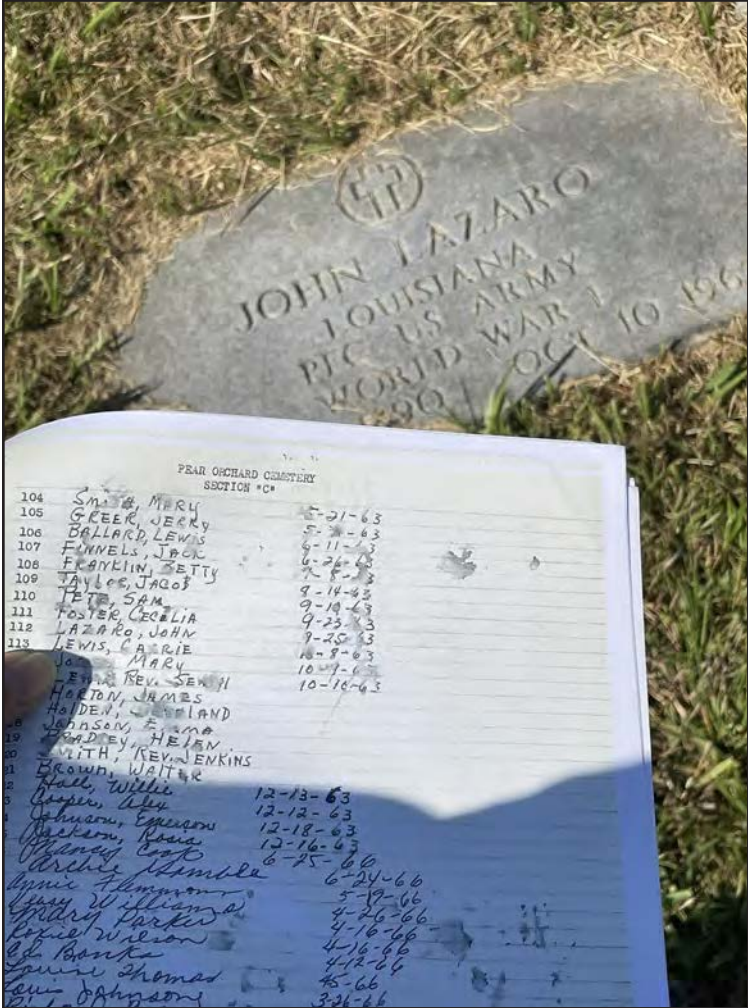 JOHN LAZARO
LOUISIANA
PFC US ARMY
WORLD WAR I
OCT 10 196
PEAR ORCHARD CEMETERY
SECTION "C"
104 SMITH, MARY 5-21-63
105 GREER, JERRY
106 BALLARD, LEWIS
107 FINNELS, JACK 6-26-63
108 FRANKLIN, BETTY
109 TAYLOR, JACOB 8-14-63
110 PETE, SAM 9-10-63
111 FOSTER, CECELIA 9-23-63
112 LAZARO, JOHN 9-25-63
113 LEWIS, CARRIE 10-8-63
MARY 10-9-63
REV. 10-10-63
HORTON, JAMES
HOLDEN,
JOHNSON,
BRADLEY, HELEN
SMITH, REV. JENKINS
BROWN, WALTER
Hall, Willie 12-13-63
Cooper, Alex 12-12-63
Johnson, Emerson 12-18-63
Jackson, Rosia 12-16-63
Nancy Cook 6-25-66
Archie Gamble 6-24-66
Annie 5-19-66
Williams 4-26-66
Mary Parker 4-16-66
Roxie Wilson 4-16-66
Ed Banks 4-12-66
Louise Thomas 45-66
Louis Johnson 3-26-66